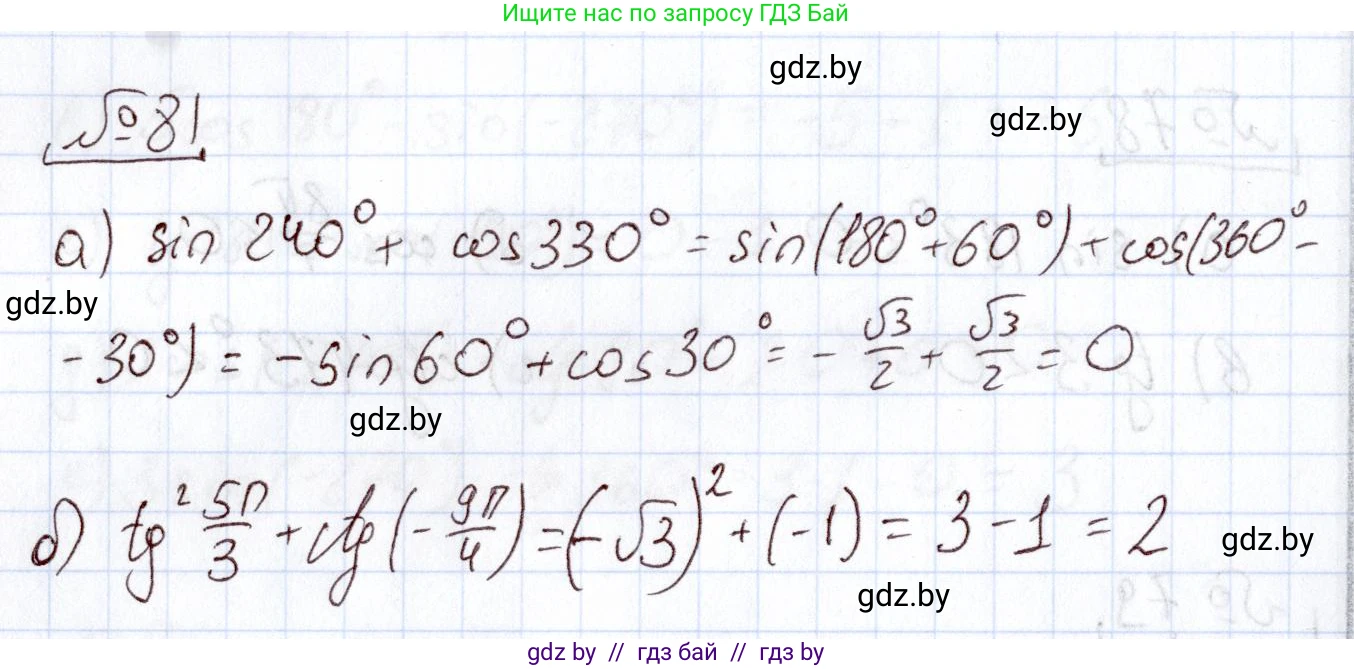 Ищите нас по запросу ГДЗ Бай
gdz.by
№81
gdz.by
а) sin 240° + cos 330° = sin(180° + 60°) + cos(360° -
gdz.by
- 30°) = - sin 60° + cos 30° = - √3/2 + √3/2 = 0
gdz.by
б) tg² 5π/3 + ctg(- 9π/4) = (-√3)² + (-1) = 3 - 1 = 2
gdz.by
gdz.by
gdz.by // гдз бай // гдз by